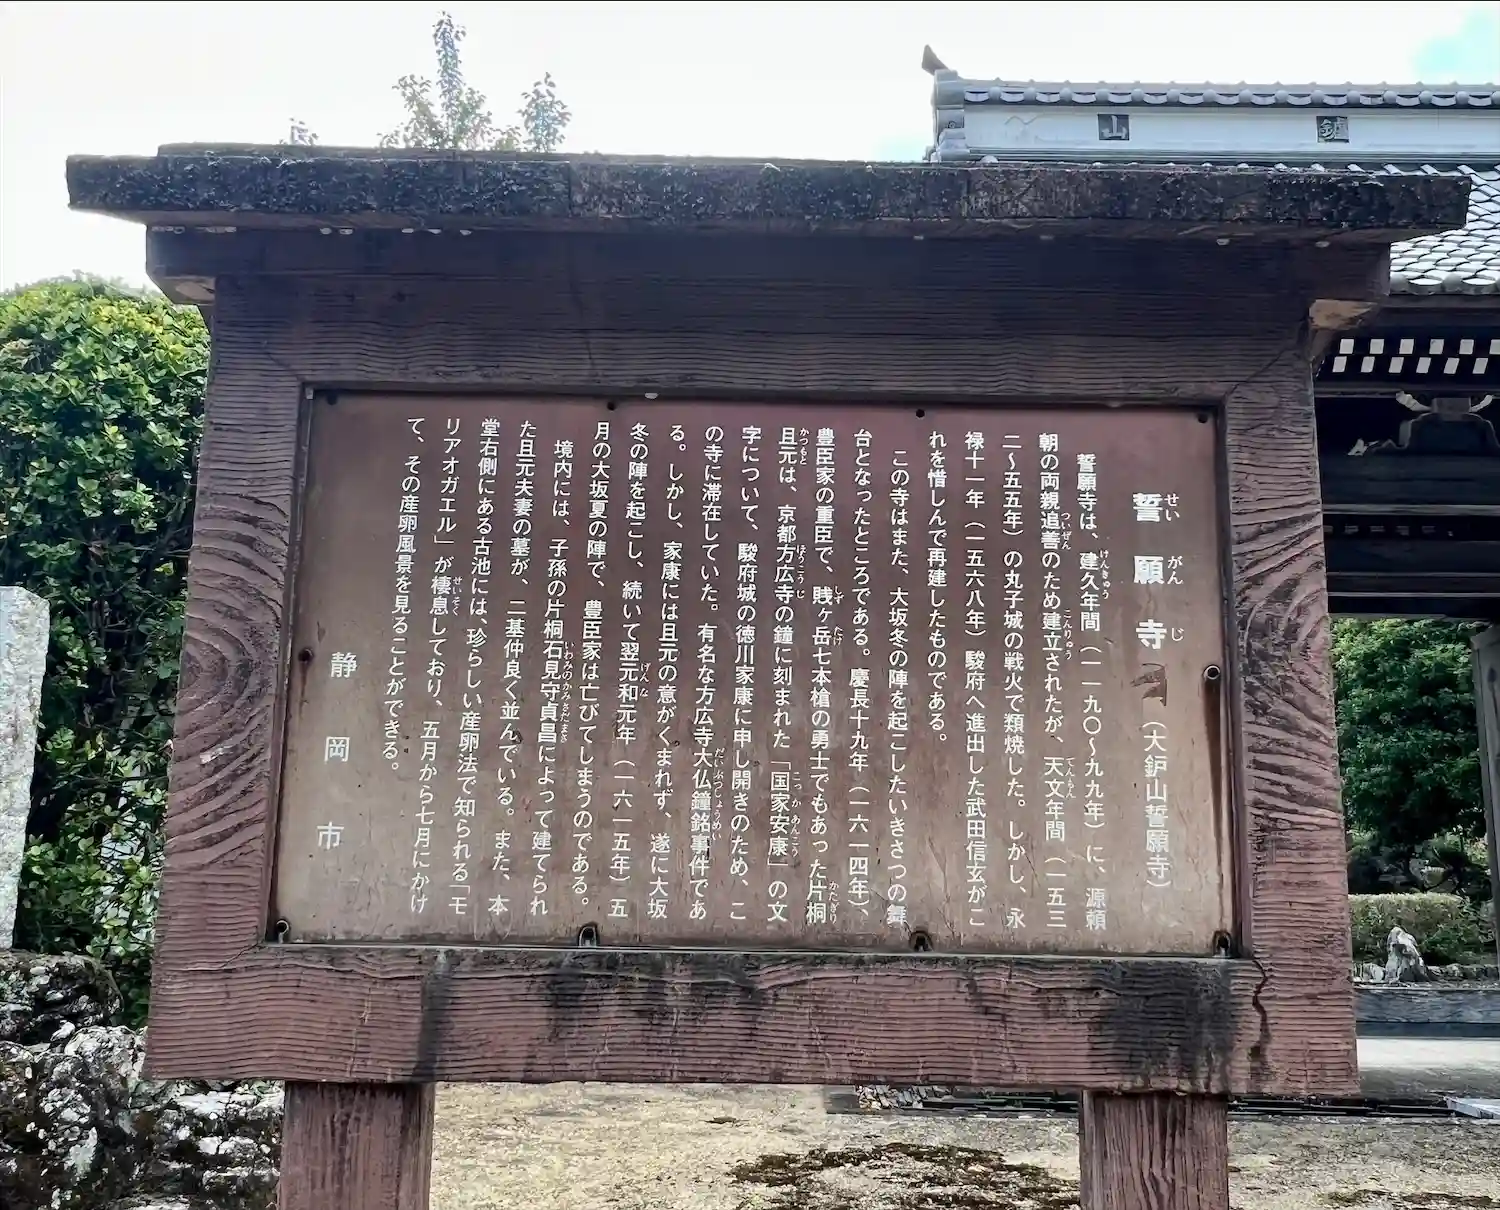 山 鑪
誓願寺（大鈩山誓願寺）
せい がん じ
誓願寺は、建久年間（一一九〇〜九九年）に、源頼
けんきゅう
朝の両親追善のため建立されたが、天文年間（一五三
ついぜん こんりゅう てんもん
二〜五五年）の丸子城の戦火で類焼した。しかし、永
禄十一年（一五六八年）駿府へ進出した武田信玄がこ
れを惜しんで再建したものである。
この寺はまた、大坂冬の陣を起こしたいきさつの舞
台となったところである。慶長十九年（一六一四年）、
豊臣家の重臣で、賤ヶ岳七本槍の勇士でもあった片桐
しず たけ かたぎり
且元は、京都方広寺の鐘に刻まれた「国家安康」の文
かつもと ほうこうじ こっか あんこう
字について、駿府城の徳川家康に申し開きのため、こ
の寺に滞在していた。有名な方広寺大仏鐘銘事件であ
だいぶつしょうめい
る。しかし、家康には且元の意がくまれず、遂に大坂
冬の陣を起こし、続いて翌元和元年（一六一五年）五
げんな
月の大坂夏の陣で、豊臣家は亡びてしまうのである。
境内には、子孫の片桐石見守貞昌によって建てられ
いわみのかみさだまさ
た且元夫妻の墓が、二基仲良く並んでいる。また、本
堂右側にある古池には、珍らしい産卵法で知られる「モ
リアオガエル」が棲息しており、五月から七月にかけ
せいそく
て、その産卵風景を見ることができる。
静岡市